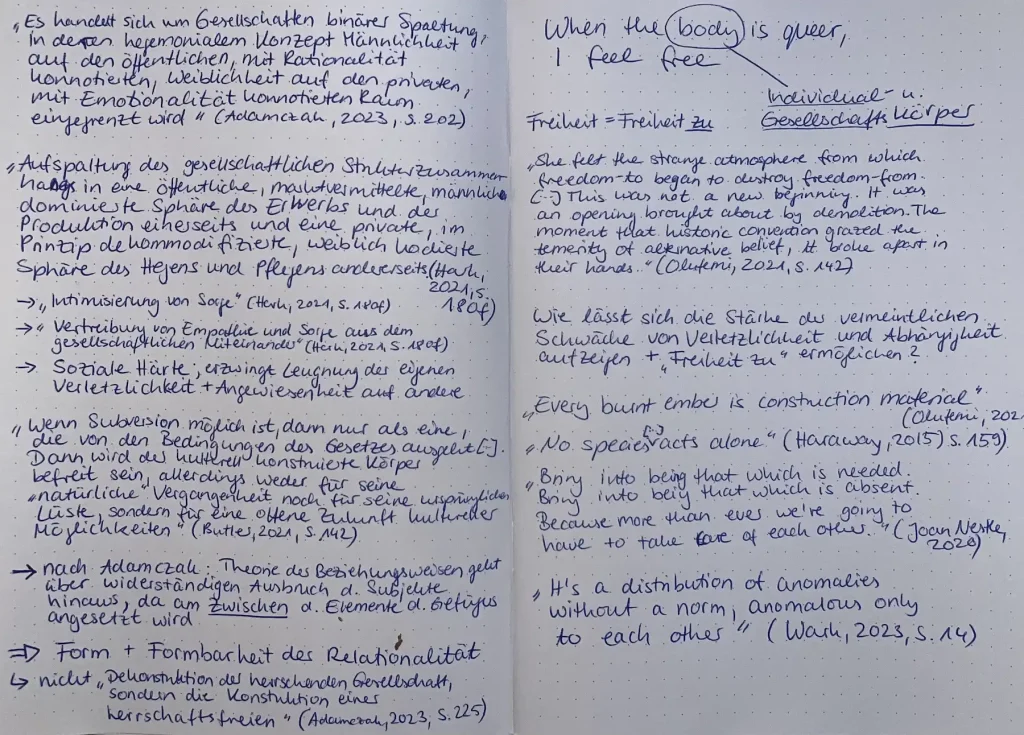 „Es handelt sich um Gesellschaften binärer Spaltung,
in deren hegemonialem Konzept Männlichkeit
auf den öffentlichen, mit Rationalität
konnotierten, Weiblichkeit auf den privaten,
mit Emotionalität konnotierten Raum
eingegrenzt wird" (Adamczak, 2023, S. 202)
„Aufspaltung des gesellschaftlichen Strukturzusammen
hangs in eine öffentliche, marktvermittelte, männlich
dominierte Sphäre des Erwerbs und der
Produktion einerseits und eine private, im
Prinzip dekommodifizierte, weiblich kodierte
Sphäre des Hegens und Pflegens andererseits (Hark,
2021, S.
180f)
→ „Intimisierung von Sorge" (Hark, 2021, S. 180f)
→ „Vertreibung von Empathie und Sorge aus dem
gesellschaftlichen Miteinander" (Hark, 2021, S. 180f)
→ Soziale Härte, erzwingt Leugnung der eigenen
Verletzlichkeit + Angewiesenheit auf andere
„Wenn Subversion möglich ist, dann nur als eine,
die von den Bedingungen des Gesetzes ausgeht [..].
Dann wird der kulturell konstruierte Körper
befreit sein, allerdings weder für seine
„natürliche" Vergangenheit noch für seine ursprünglichen
Lüste, sondern für eine offene Zukunft kultureller
Möglichkeiten" (Butler, 2021, S. 142)
→ nach Adamczak: Theorie der Beziehungsweisen geht
über widerständigen Ausbruch d. Subjekte
hinaus, da am Zwischen d. Elemente d. Gefüges
angesetzt wird
⇒ Form + Formbarkeit der Relationalität
↳ nicht „Dekonstruktion der herrschenden Gesellschaft,
sondern die Konstruktion einer
herrschaftsfreien" (Adamczak, 2023, S. 225)
When the body is queer,
I feel free
Individual- u.
Gesellschaftskörper
Freiheit = Freiheit zu
„She felt the strange atmosphere from which
freedom-to began to destroy freedom-from.
[..] This was not a new beginning. It was
an opening brought about by demolition. The
moment that historic convention grazed the
temerity of alternative belief, it broke apart in
their hands." (Olufemi, 2021, S. 142)
Wie lässt sich die Stärke der vermeintlichen
Schwäche von Verletzlichkeit und Abhängigkeit
aufzeigen + „Freiheit zu" ermöglichen?
„Every burnt ember is construction material".
(Olufemi, 202
„No species [..] acts alone" (Haraway, 2015) S. 159)
„Bring into being that which is needed.
Bring into being that which is absent.
Because more than ever we're going to
have to take care of each other." (Joan Nestle,
2020)
„It's a distribution of anomalies
without a norm, anomalous only
to each other" (Wark, 2023, S. 14)